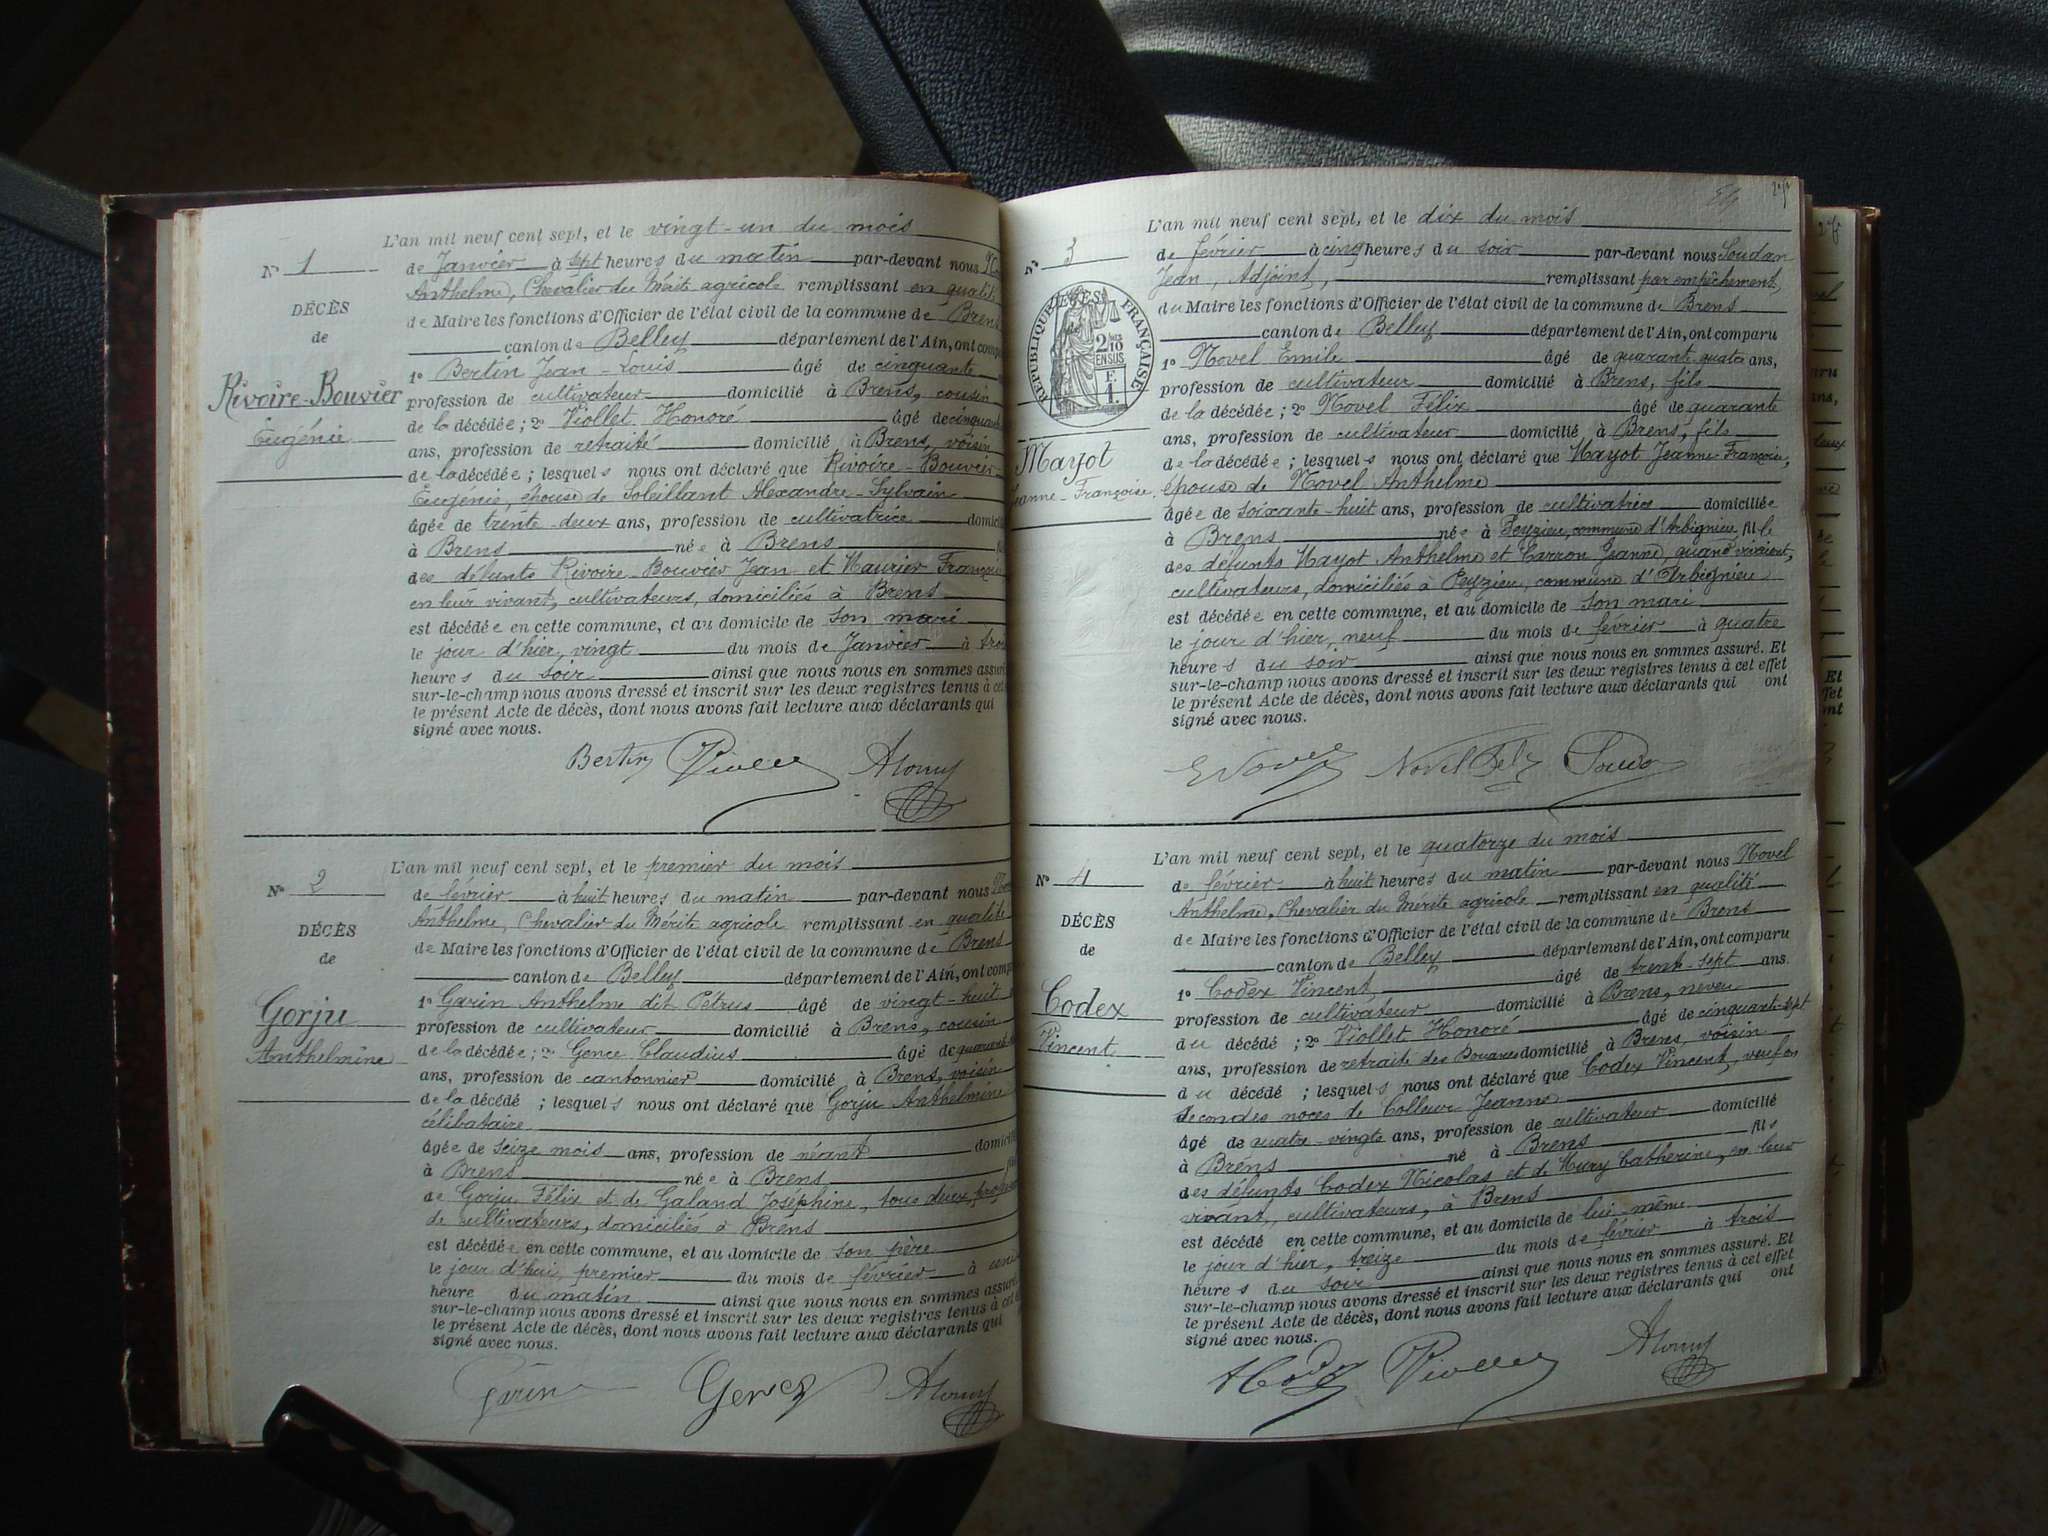 N° 1
DÉCÈS
de
Rivoire-Bouvier
Eugénie
L'an mil neuf cent sept, et le vingt-un du mois
de Janvier à sept heures du matin par-devant nous
Anthelme, Chevalier du Mérite agricole remplissant en qualité
de Maire les fonctions d'Officier de l'état civil de la commune de Brens
canton de Belley département de l'Ain, ont comparu
1° Bertin Jean-Louis âgé de cinquante
profession de cultivateur domicilié à Brens, cousin
de la décédée; 2° Viollet Honoré âgé de cinquante
ans, profession de retraité domicilié à Brens, voisin
de la décédée; lesquels nous ont déclaré que Rivoire-Bouvier
Eugénie, épouse de Soleillant Alexandre-Sylvain
âgée de trente-deux ans, profession de cultivatrice domicil
à Brens née à Brens
des défunts Rivoire-Bouvier Jean et Maurier Franço
en leur vivant, cultivateurs, domiciliés à Brens
est décédée en cette commune, et au domicile de son mari
le jour d'hier, vingt du mois de Janvier à tro
heures du soir ainsi que nous nous en sommes assuré
sur-le-champ nous avons dressé et inscrit sur les deux registres tenus à cet
le présent Acte de décès, dont nous avons fait lecture aux déclarants qui
signé avec nous.
Bertin Viollet ANovel
N° 2
DÉCÈS
de
Gorju
Anthelmine
L'an mil neuf cent sept, et le premier du mois
de février à huit heures du matin par-devant nous
Anthelme, Chevalier du Mérite agricole remplissant en qualité
de Maire les fonctions d'Officier de l'état civil de la commune de Brens
canton de Belley département de l'Ain, ont comp
1° Garin Anthelme dit Pétrus âgé de vingt-huit
profession de cultivateur domicilié à Brens, cousin
de la décédée; 2° Gence Claudius âgé de quarante
ans, profession de cantonnier domicilié à Brens, voisin
de la décédé ; lesquels nous ont déclaré que Gorju Anthelmine
célibataire
âgée de seize mois ans, profession de néant domicil
à Brens née à Brens
de Gorju Félix et de Galand Joséphine, tous deux, profess
de cultivateurs, domiciliés à Brens
est décédée en cette commune, et au domicile de son père
le jour d'hui, premier du mois de février à
heure du matin ainsi que nous nous en sommes assuré
sur-le-champ nous avons dressé et inscrit sur les deux registres tenus à cet
le présent Acte de décès, dont nous avons fait lecture aux déclarants qui
signé avec nous.
Garin Gence ANovel
N° 3
RÉPUBLIQUE FRANÇAISE
2 10
EN SUS
F.
1.
Mayot
Jeanne-Françoise
L'an mil neuf cent sept, et le dix du mois
de février à cinq heures du soir par-devant nous Soudan
Jean, Adjoint, remplissant par empêchement
du Maire les fonctions d'Officier de l'état civil de la commune de Brens
canton de Belley département de l'Ain, ont comparu
1° Novel Emile âgé de quarante quatre ans,
profession de cultivateur domicilié à Brens, fils
de la décédée; 2° Novel Félix âgé de quarante
ans, profession de cultivateur domicilié à Brens, fils
de la décédée; lesquels nous ont déclaré que Mayot Jeanne Françoise,
épouse de Novel Anthelme
âgée de soixante-huit ans, profession de cultivatrice domiciliée
à Brens née à Peyzieu, commune d'Arbignieu fille
des défunts Mayot Anthelme et Carron Jeanne, quand vivaient,
cultivateurs, domiciliés à Peyzieu, commune d'Arbignieu
est décédée en cette commune, et au domicile de son mari
le jour d'hier, neuf du mois de février à quatre
heures du soir ainsi que nous nous en sommes assuré. Et
sur-le-champ nous avons dressé et inscrit sur les deux registres tenus à cet effet
le présent Acte de décès, dont nous avons fait lecture aux déclarants qui ont
signé avec nous.
E Novel Novel Félix Soudan
N° 4
DÉCÈS
de
Codex
Vincent
L'an mil neuf cent sept, et le quatorze du mois
de février à huit heures du matin par-devant nous Novel
Anthelme, Chevalier du Mérite agricole remplissant en qualité
de Maire les fonctions d'Officier de l'état civil de la commune de Brens
canton de Belley département de l'Ain, ont comparu
1° Codex Vincent âgé de trente-sept ans.
profession de cultivateur domicilié à Brens, neveu
du décédé ; 2° Viollet Honoré âgé de cinquante-sept
ans, profession de retraité des Douanes domicilié à Brens, voisin
du décédé ; lesquels nous ont déclaré que Codex Vincent, veuf en
secondes noces de Jeanne
âgé de quatre-vingts ans, profession de cultivateur domicilié
à Brens né à Brens fils
des défunts Codex Nicolas et de Mury Catherine, en leur
vivant, cultivateurs, à Brens
est décédé en cette commune, et au domicile de lui-même
le jour d'hier, treize du mois de février à trois
heures du soir ainsi que nous nous en sommes assuré. Et
sur-le-champ nous avons dressé et inscrit sur les deux registres tenus à cet effet
le présent Acte de décès, dont nous avons fait lecture aux déclarants qui ont
signé avec nous.
Codex Viollet ANovel